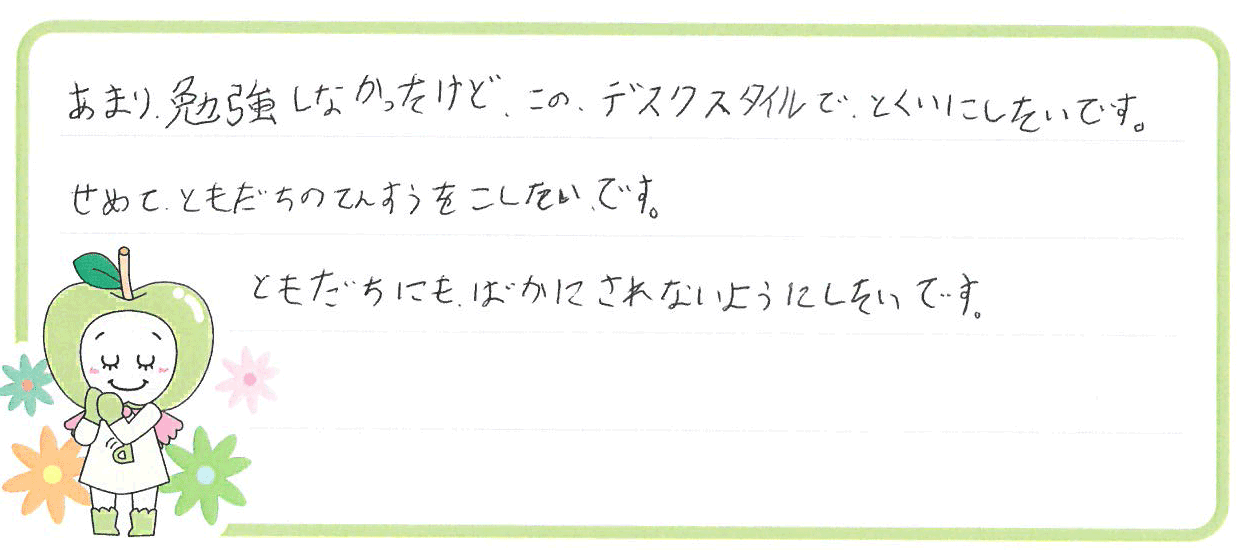 あまり、勉強しなかったけど、この、デスクスタイルで、とくいにしたいです。
せめて、ともだちのてんすうをこしたい、です。
ともだちにも、ばかにされないようにしたいです。